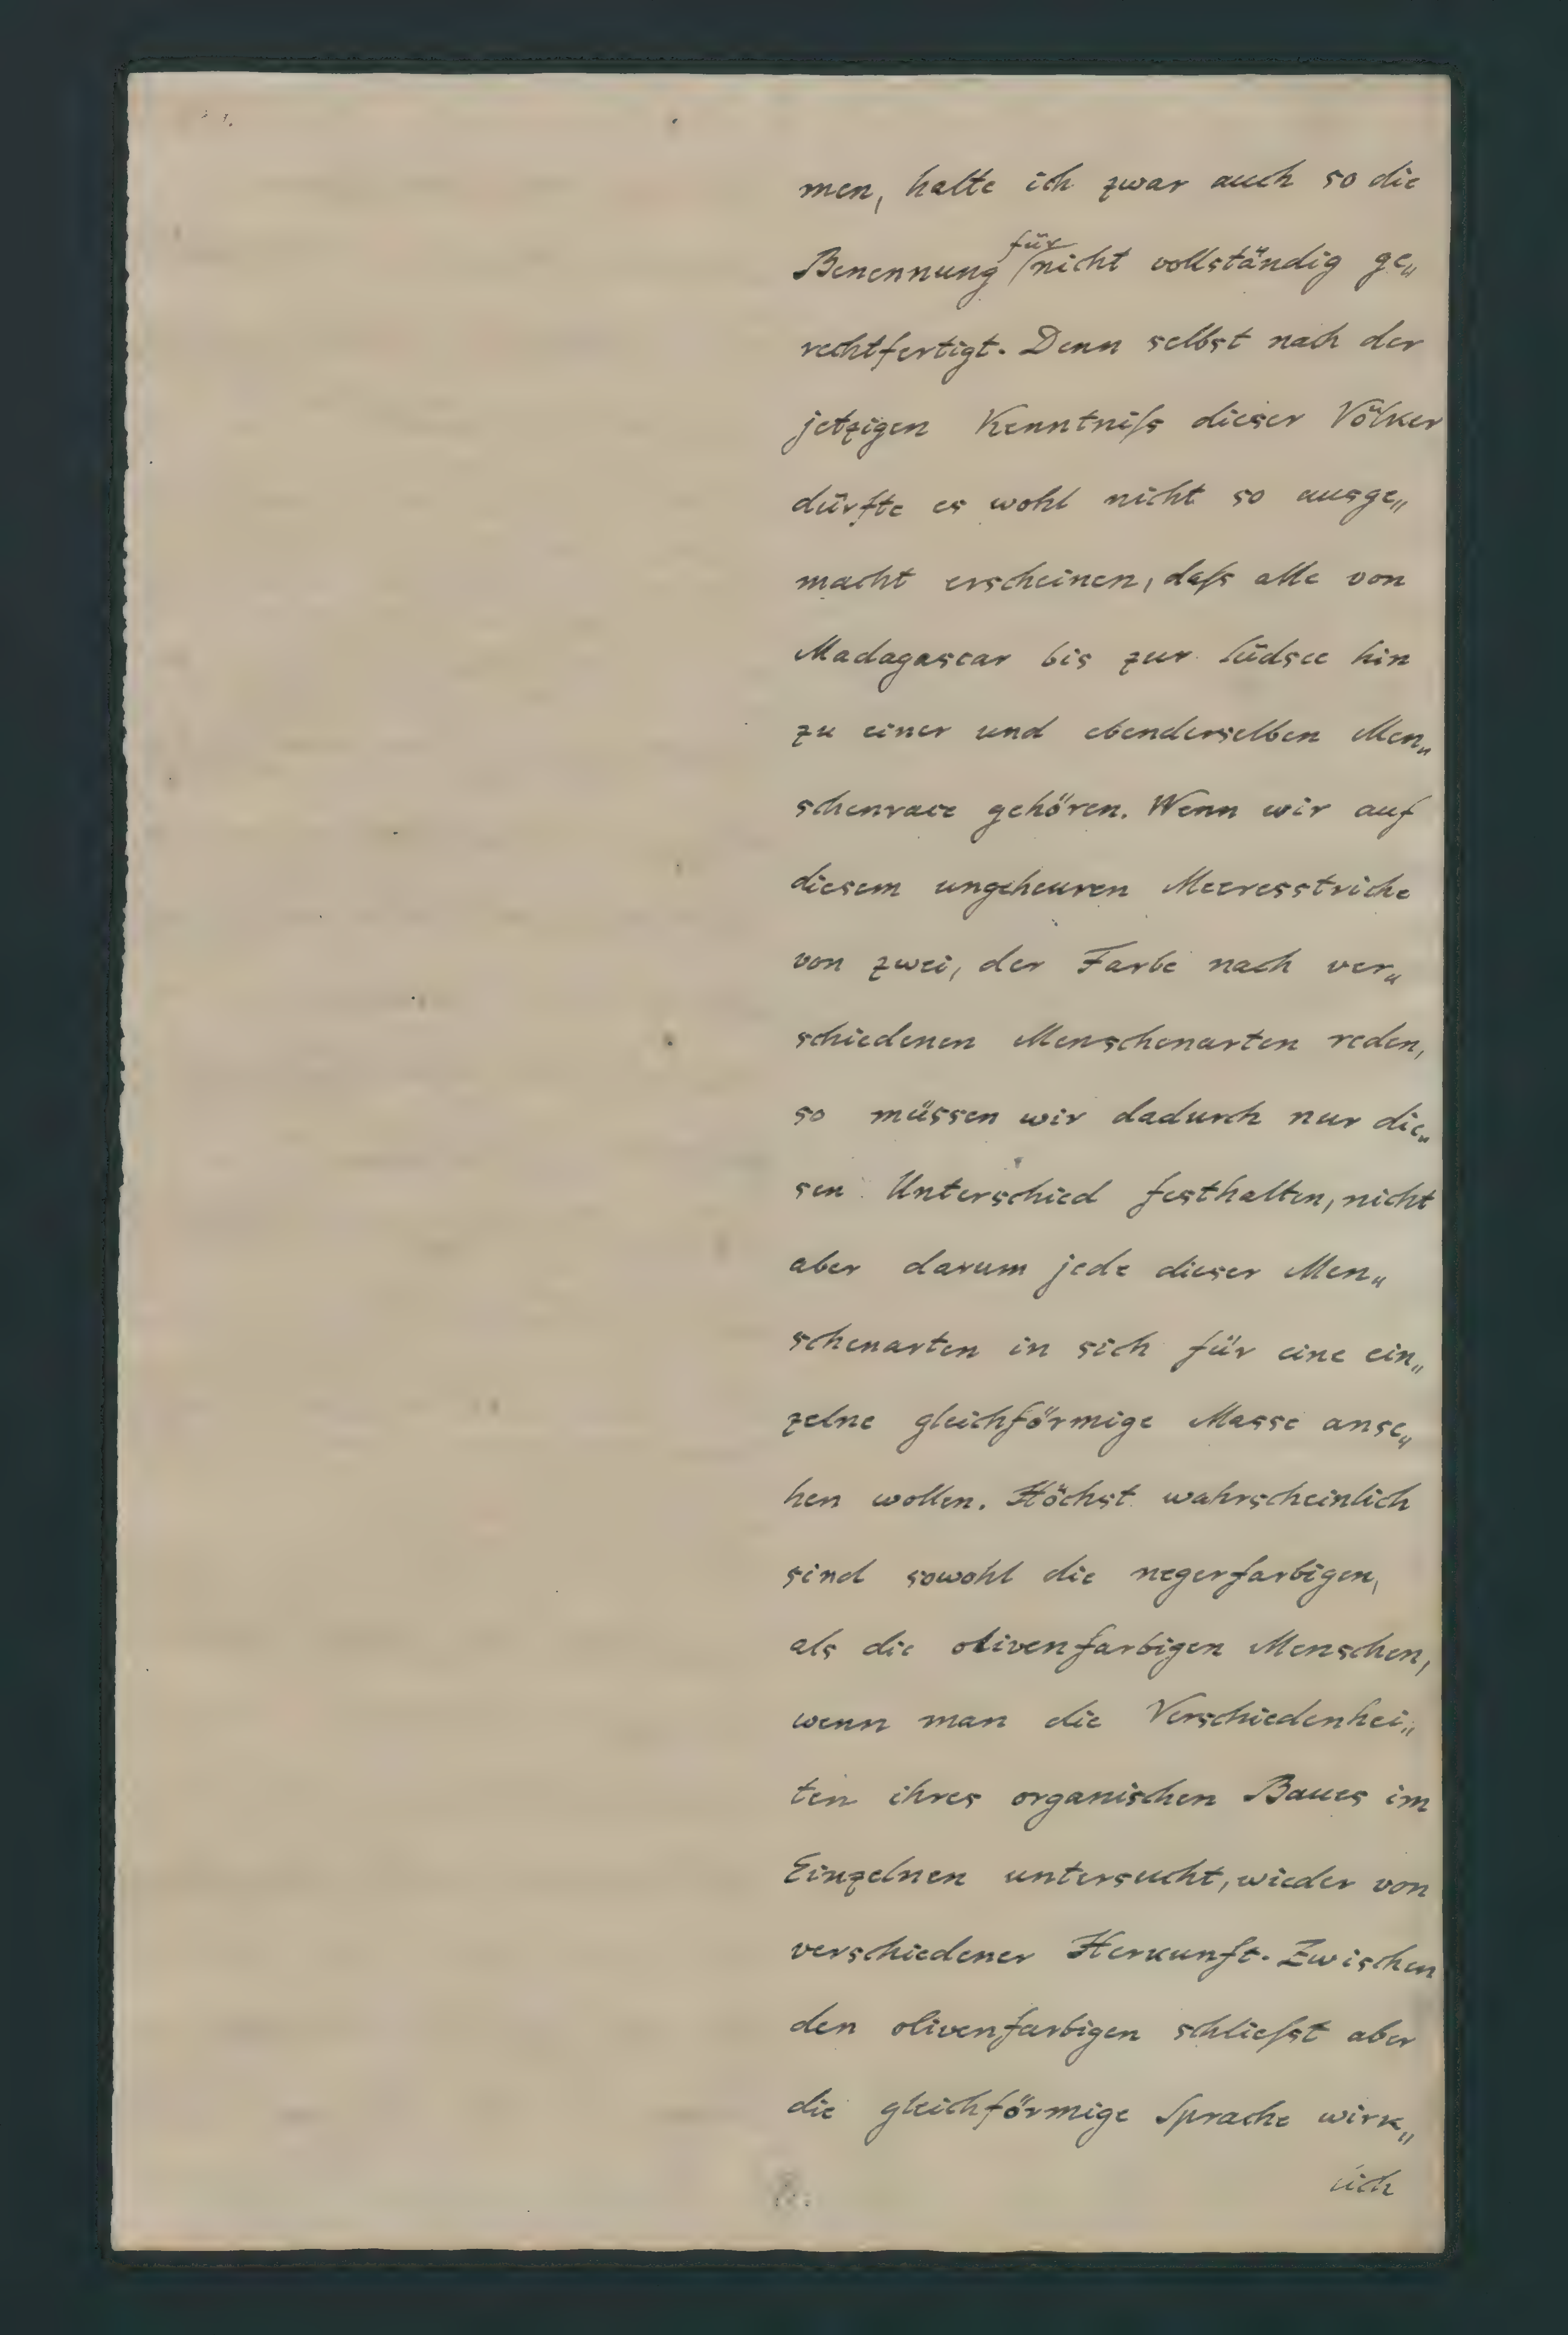 men, halte ich zwar auch so die
für
Benennung nicht vollständig ge„
rechtfertigt. Denn selbst nach der
jetzigen Kenntniſs dieser Völker
dürfte es wohl nicht so ausge„
macht erscheinen, daſs alle von
Madagascar bis zur Südsee hin
zu einer und ebenderselben Men„
schenrace gehören. Wenn wir auf
diesem ungeheuren Meeresstriche
von zwei, der Farbe nach ver„
schiedenen Menschenarten reden,
so müssen wir dadurch nur die„
sen Unterschied festhalten, nicht
aber darum jede dieser Men„
schenarten in sich für eine ein„
zelne gleichförmige Masse anse„
hen wollen. Höchst wahrscheinlich
sind sowohl die negerfarbigen,
als die olivenfarbigen Menschen,
wenn man die Verschiedenhei„
ten ihres organischen Baues im
Einzelnen untersucht, wieder von
verschiedener Herkunft. Zwischen
den olivenfarbigen schlieſst aber
die gleichförmige Sprache wirk„
lich